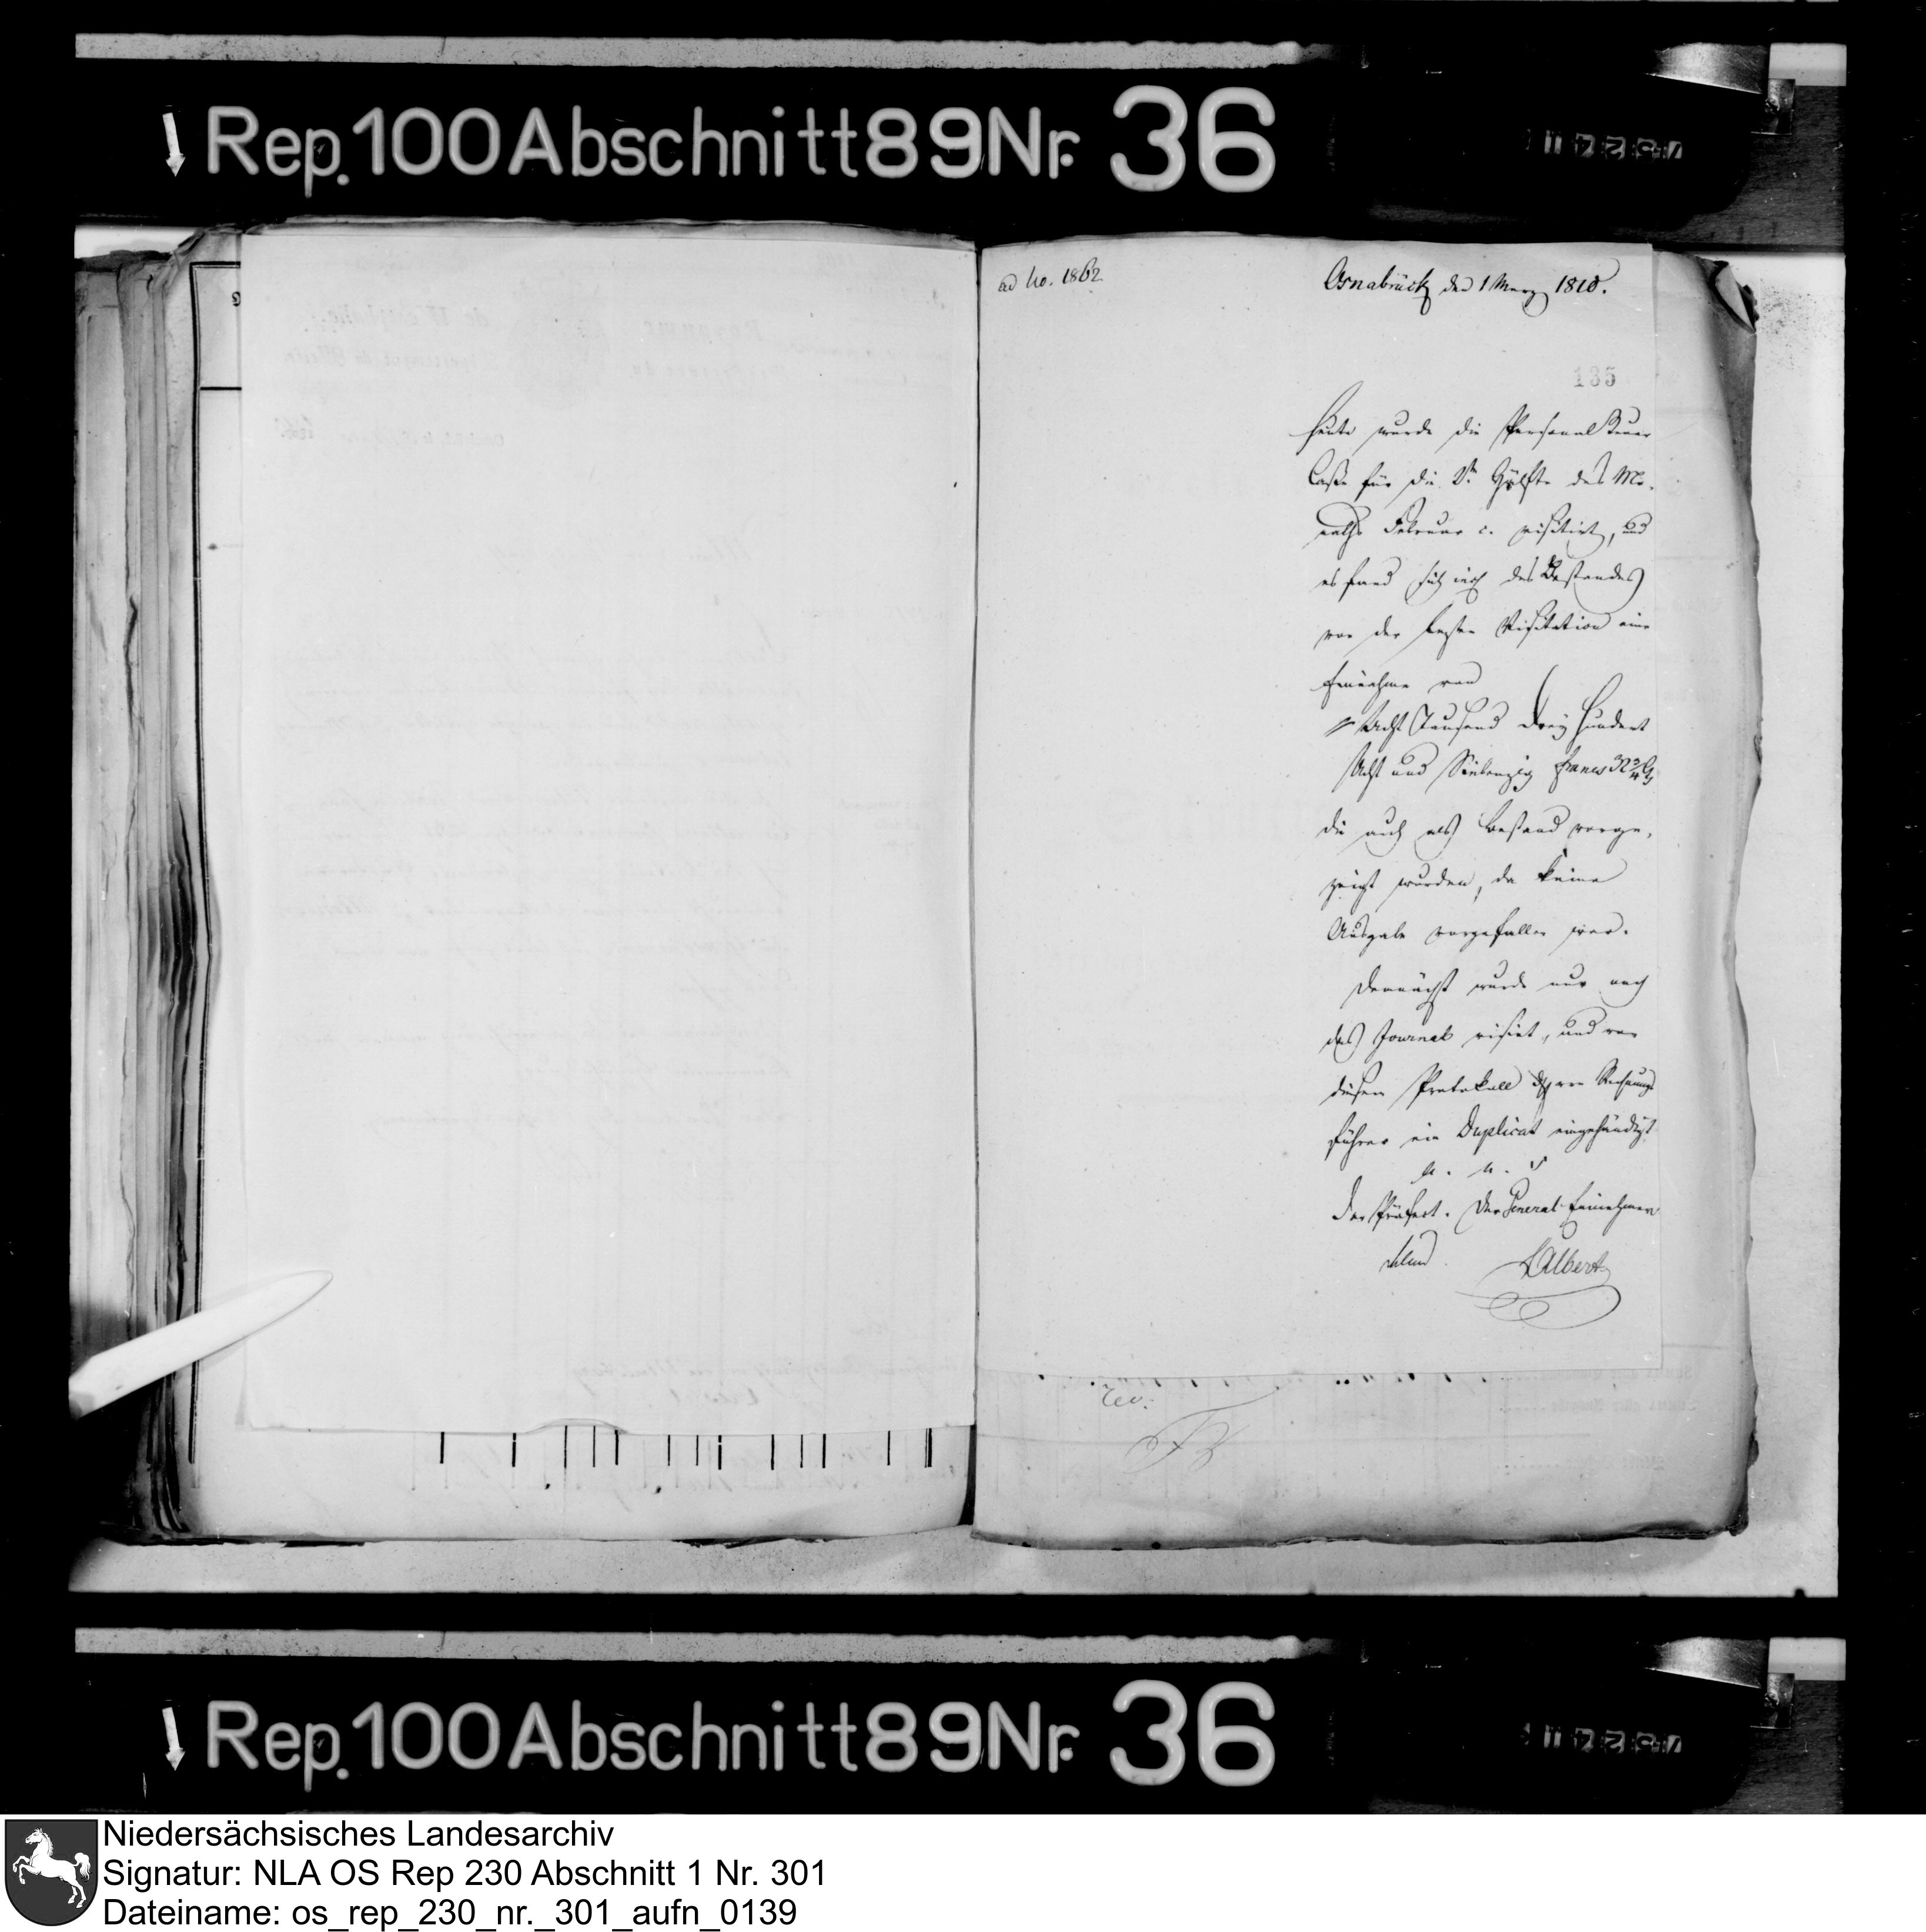 Rep. 100 Abschnitt 89 Nr. 36
ad No. 1862.
Osnabrück den 1 Merz 1810.
135
Heute wurde die Personal Steuer
Casse für die 2te Hälfte des Mo-
naths Februar c. visitirt, und
es fand sich incl. des Bestandes
von der letzten Visitation eine
Einnahme von
Acht Tausend Drey Hundert
Acht und Siebenzig Francs 32 3/4
die auch als Bestand vorge-
zeigt wurden, da keine
Ausgabe vorgefallen war.
Demnächst wurde nur noch
das Journal visirt, und von
diesem Protokoll dem Rechnungs
führer ein Duplicat eingehändigt
a. u. s
Der Präfect. Der General-Einnehmer
LAlbert
Rep. 100 Abschnitt 89 Nr. 36
Niedersächsisches Landesarchiv
Signatur: NLA OS Rep 230 Abschnitt 1 Nr. 301
Dateiname: os_rep_230_nr._301_aufn_0139